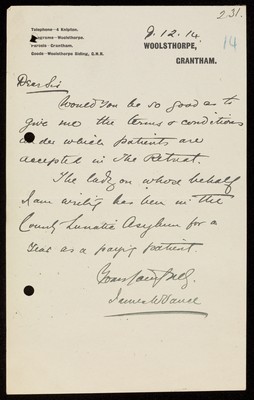 231.
Telephone-8 Knipton.
Telegrams-Woolsthorpe.
Parcels-Grantham.
Goods-Woolsthorpe Siding, G.N.R.
9.12.14.
14
WOOLSTHORPE,
GRANTHAM.
Dear Sir
Would you be so good as to
give me the terms & conditions
under which patients are
accepted in The Retreat.
The lady on whose behalf
I am writing has been in the
County Lunatic Asylum for a
year as a paying patient
Yours faithfully
James W